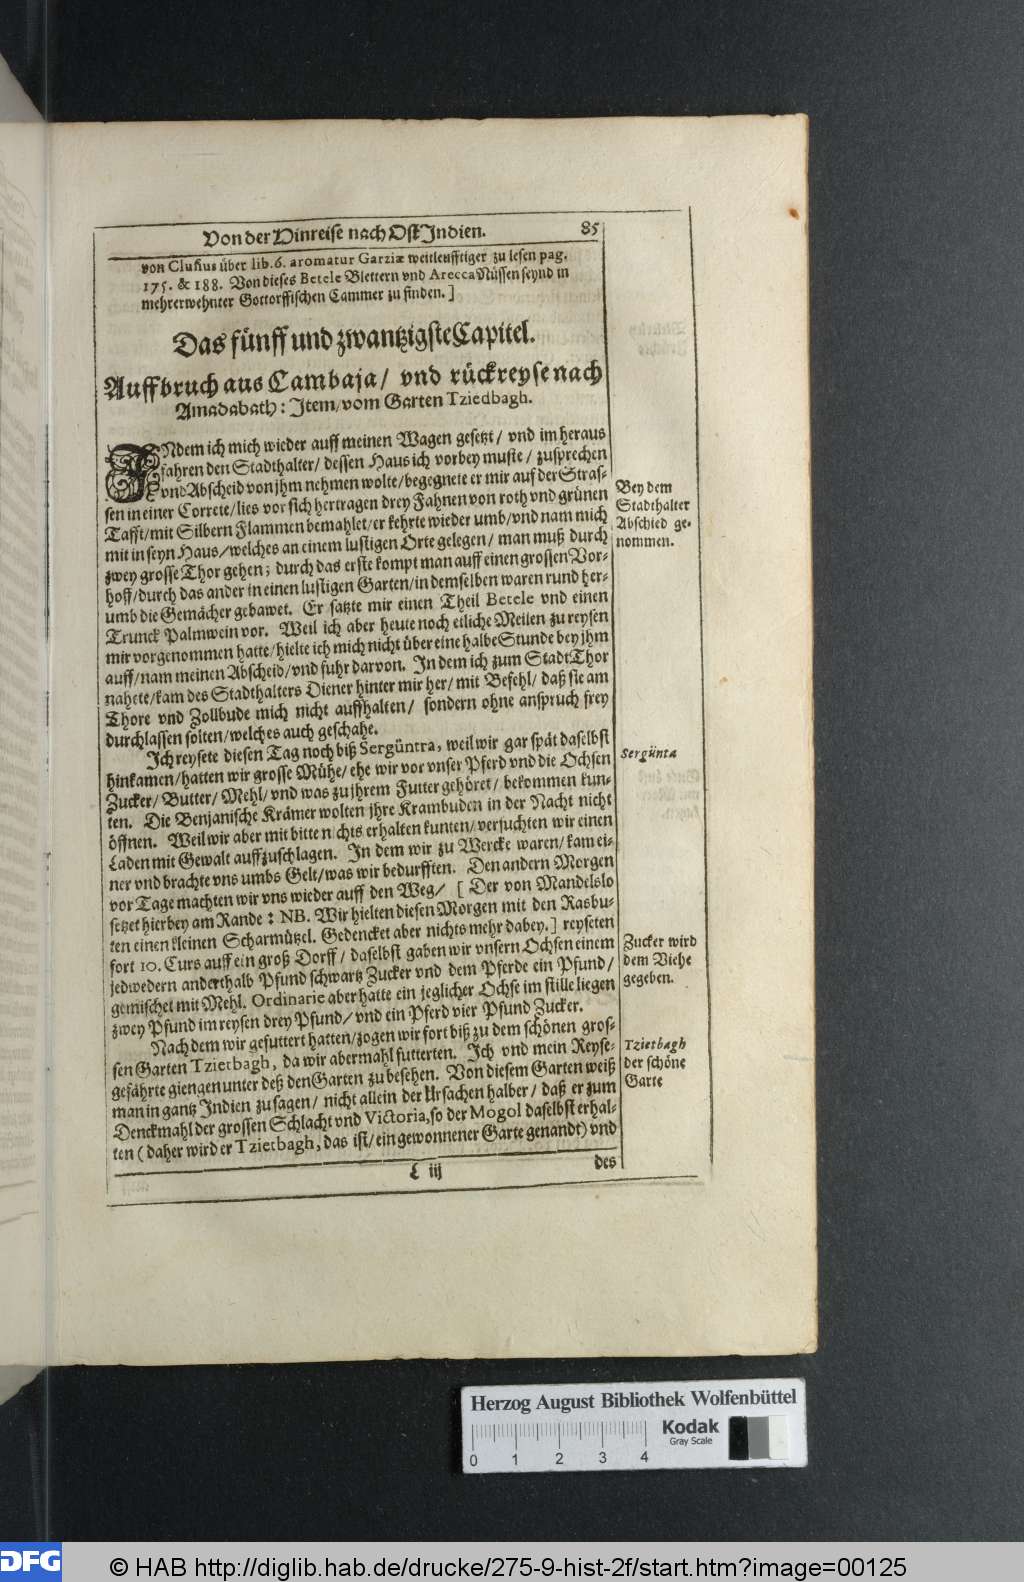 Von der Hinreise nach Ost Indien. 85
von Clusius über lib. 6. aromatur Garziæ weitleufftiger zu lesen pag.
175. & 188. Von dieses Betele Blettern vnd Arecca Nüssen seynd in
mehrerwehnter Gottorffischen Cammer zu finden. ]
Das fünff und zwantzigste Capitel.
Auffbruch aus Cambaja / vnd rückreyse nach
Amadabath: Item / vom Garten Tziedbagh.
INdem ich mich wieder auff meinen Wagen gesetzt / vnd im heraus
fahren den Stadthalter / dessen Haus ich vorbey muste / zusprechen
vnd Abscheid von jhm nehmen wolte / begegnete er mir auf der Stras-
sen in einer Correte / lies vor sich hertragen drey Fahnen von roth vnd grünen
Tafft / mit Silbern Flammen bemahlet / er kehrte wieder umb / vnd nam mich
mit in seyn Haus / welches an einem lustigen Orte gelegen / man muß durch
zwey grosse Thor gehen; durch das erste kompt man auff einen grossen Vor-
hoff / durch das ander in einen lustigen Garten / in demselben waren rund her-
umb die Gemächer gebawet. Er satzte mir einen Theil Betele vnd einen
Trunck Palmwein vor. Weil ich aber heute noch etliche Meilen zu reysen
mir vorgenommen hatte / hielte ich mich nicht über eine halbe Stunde bey jhm
auff / nam meinen Abscheid / vnd fuhr darvon. In dem ich zum Stadt Thor
nahete / kam des Stadthalters Diener hinter mir her / mit Befehl / daß sie am
Thore vnd Zollbude mich nicht auffhalten / sondern ohne anspruch frey
durchlassen solten / welches auch geschahe.
Bey dem
Stadthalter
Abschied ge-
nommen.
Ich reysete diesen Tag noch biß Sergüntra, weil wir gar spät daselbst
hinkamen / hatten wir grosse Mühe / ehe wir vor vnser Pferd vnd die Ochsen
Zucker / Butter / Mehl / vnd was zu jhrem Futter gehöret / bekommen kun-
ten. Die Benjanische Krämer wolten jhre Krambuden in der Nacht nicht
öffnen. Weil wir aber mit bitte nichts erhalten kunten / versuchten wir einen
Laden mit Gewalt auffzuschlagen. In dem wir zu Wercke waren / kam ei-
ner vnd brachte vns umbs Gelt / was wir bedurfften. Den andern Morgen
vor Tage machten wir vns wieder auff den Weg / [ Der von Mandelslo
setzet hierbey am Rande: NB. Wir hielten diesen Morgen mit den Rasbu-
ten einen kleinen Scharmützel. Gedencket aber nichts mehr dabey. ] reyseten
fort 10. Curs auff ein groß Dorff / daselbst gaben wir vnsern Ochsen einem
jedwedern anderthalb Pfund schwartz Zucker vnd dem Pferde ein Pfund /
gemischet mit Mehl. Ordinarie aber hatte ein jeglicher Ochse im stille liegen
zwey Pfund im reysen drey Pfund / vnd ein Pferd vier Pfund Zucker.
Sergünta
Zucker wird
dem Viehe
gegeben.
Nach dem wir gefuttert hatten / zogen wir fort biß zu dem schönen gros-
sen Garten Tzietbagh, da wir abermahl futterten. Ich vnd mein Reyse-
gefährte giengen unter deß den Garten zu besehen. Von diesem Garten weiß
man in gantz Indien zu sagen / nicht allein der Ursachen halber / daß er zum
Denckmahl der grossen Schlacht vnd Victoria, so der Mogol daselbst erhal-
ten (daher wird er Tzietbagh, das ist / ein gewonnener Garte genandt) vnd
Tzietbagh
der schöne
Garte
L iij des
Herzog August Bibliothek Wolfenbüttel
Kodak
Gray Scale
0 1 2 3 4
DFG
© HAB http://diglib.hab.de/drucke/275-9-hist-2f/start.htm?image=00125